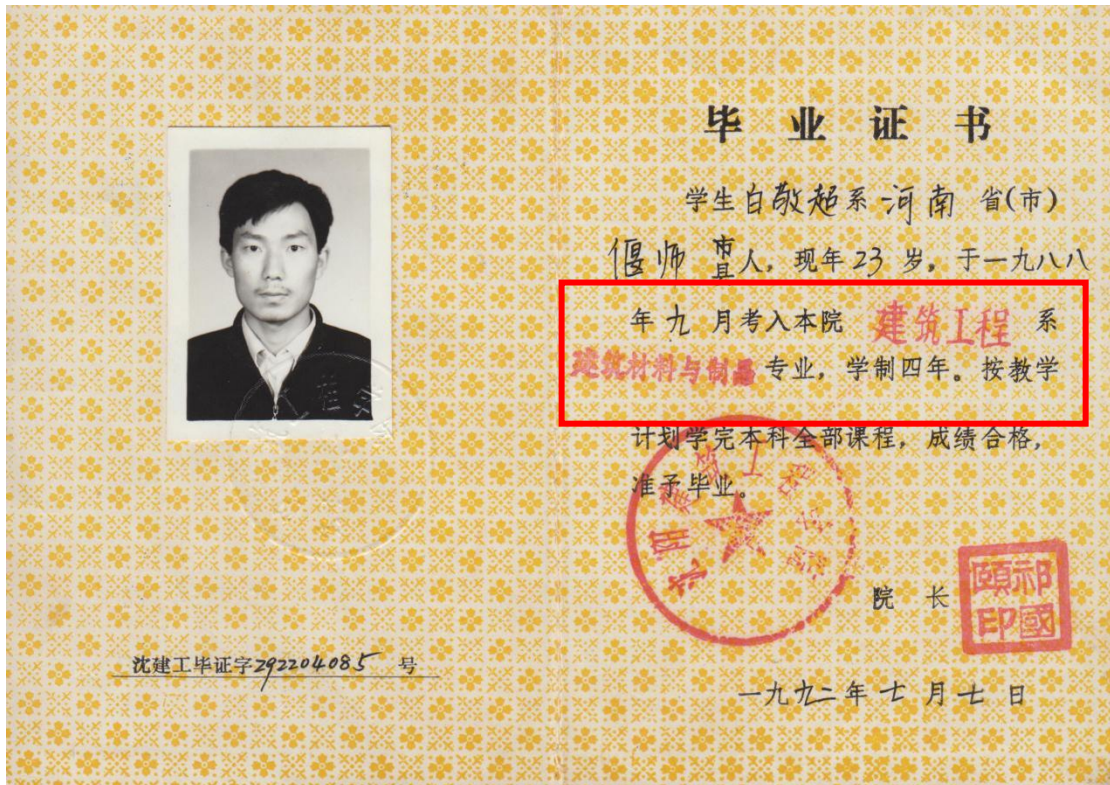 毕业证书
学生白敬超系河南省(市)
偃师市县人，现年23岁，于一九八八
年九月考入本院建筑工程系
建筑材料与制品专业，学制四年。按教学
计划学完本科全部课程，成绩合格，
准予毕业。
沈阳建筑工程学院
院长
祁國
頤印
沈建工毕证字292204085号
一九九二年七月七日